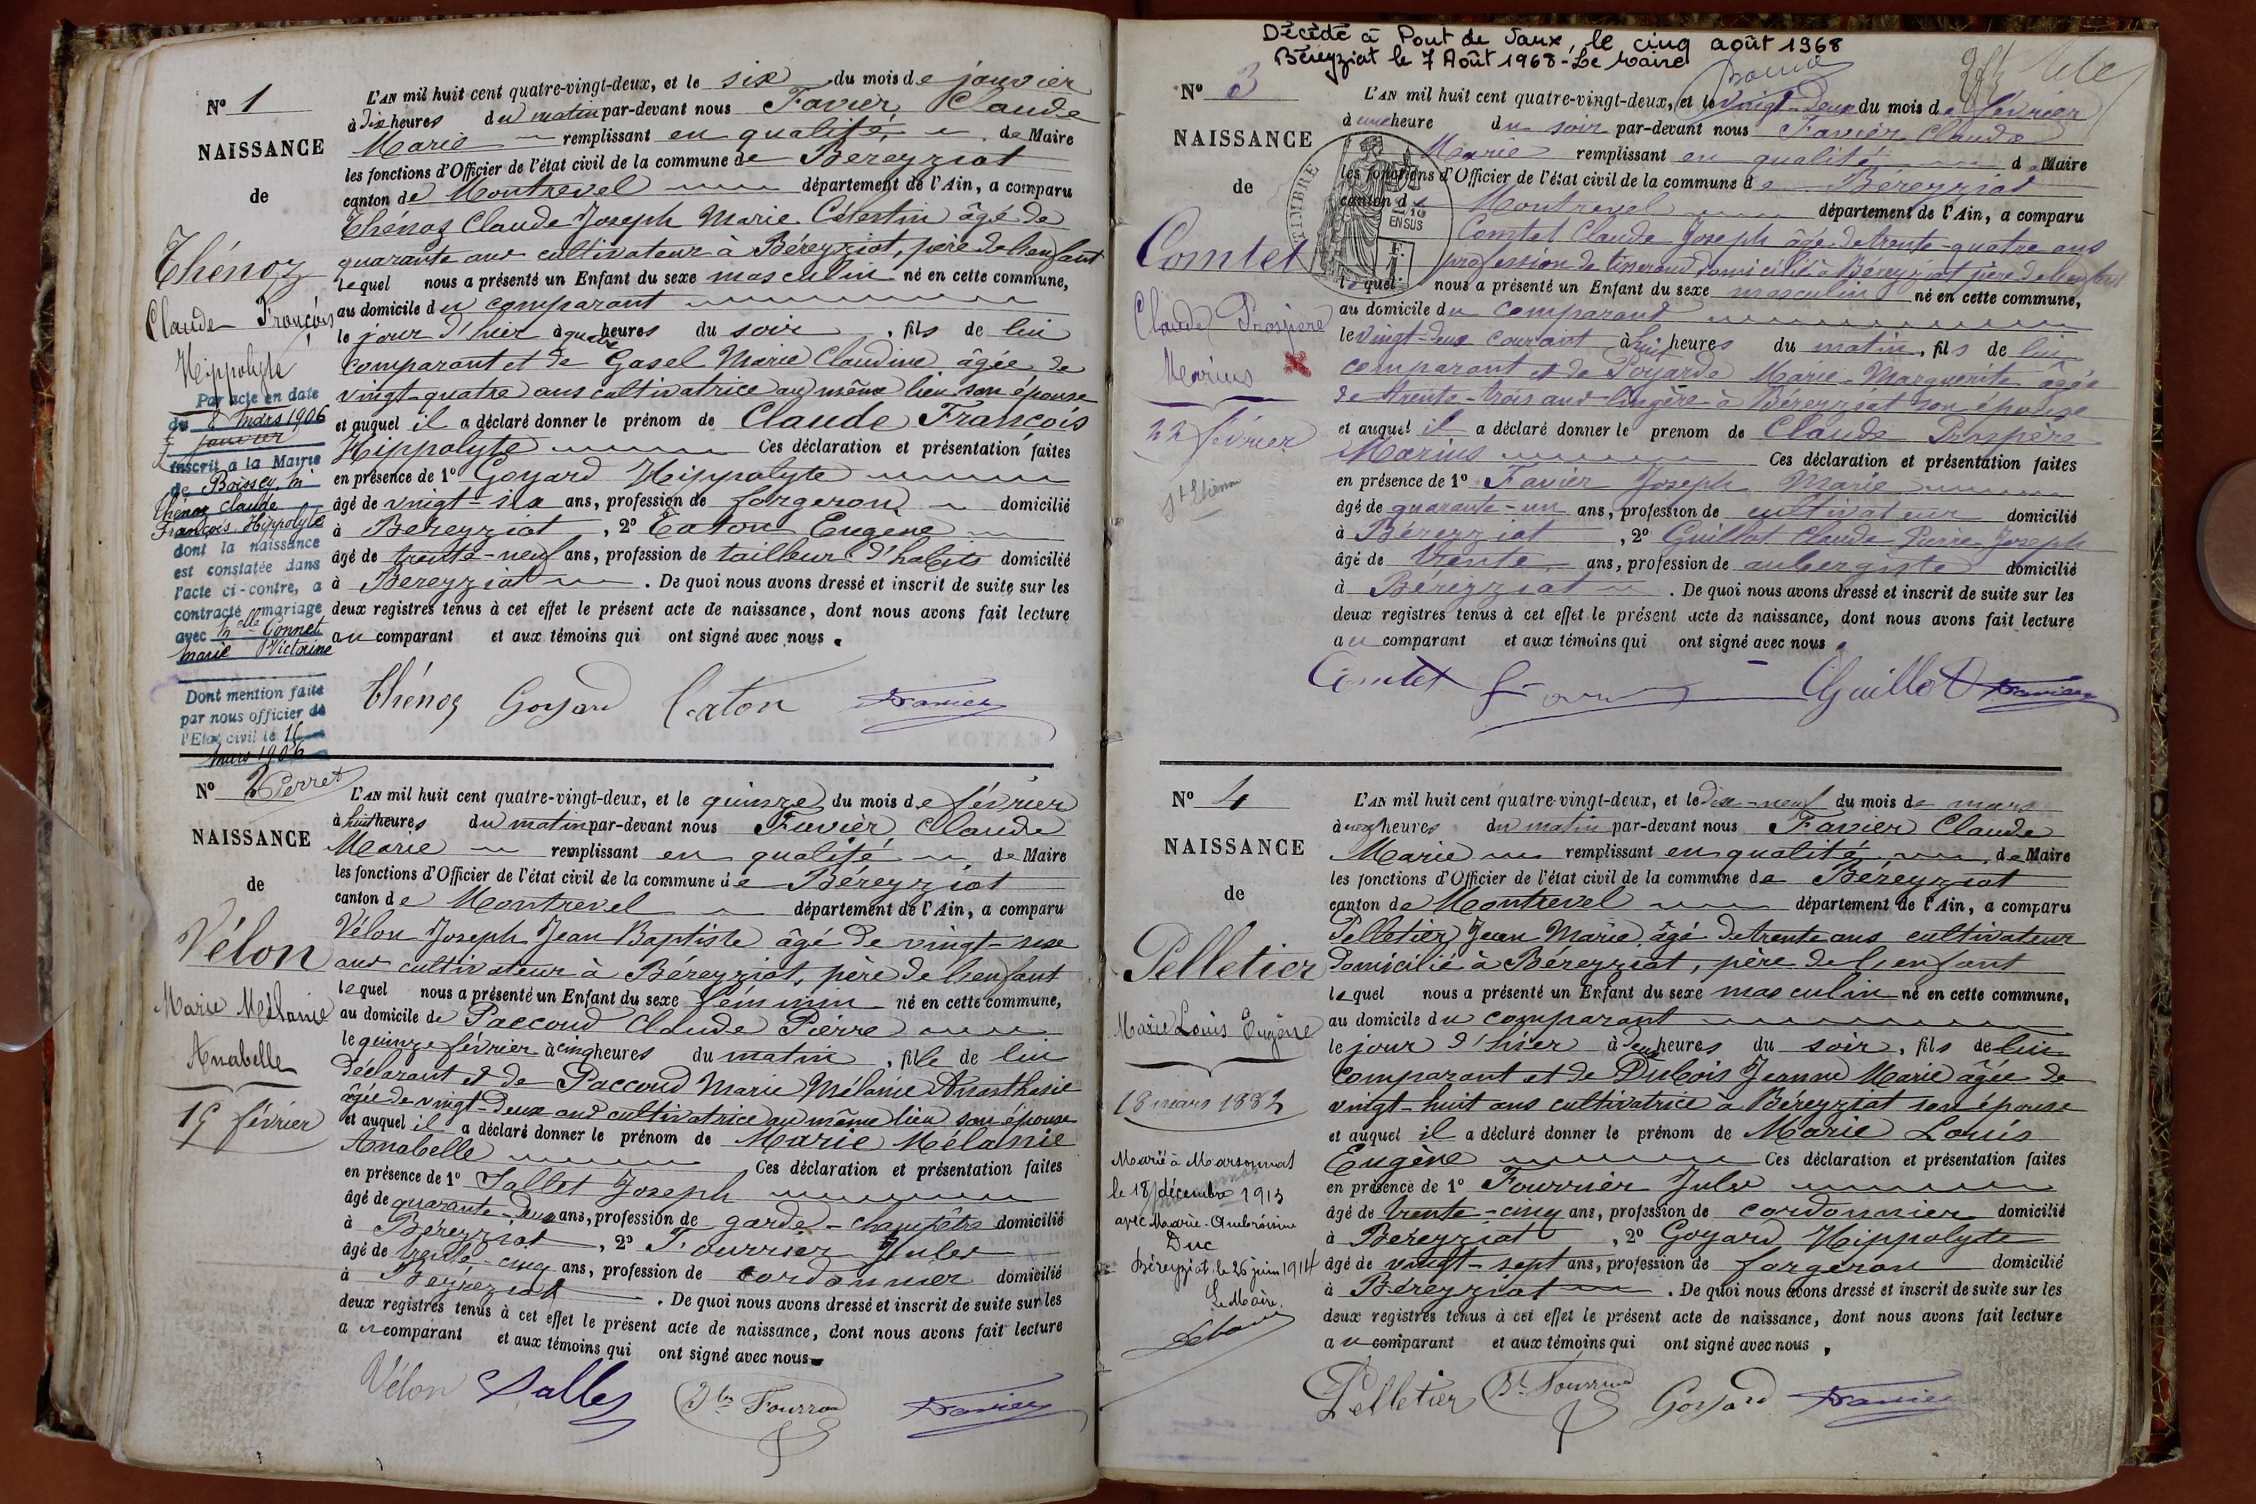 N° 1
NAISSANCE
de
Thénoz
Claude François
Hippolyte
Par acte en date
du 8 mars 1906
janvier
inscrit à la Mairie
de Boissey, M
Thénoz Claude
François Hippolyte
dont la naissance
est constatée dans
l'acte ci-contre, a
contracté mariage
avec Melle Gonnet
Marie Victorine
Dont mention faite
par nous officier de
l'Etat civil le 16
mars 1906
Perret
L'AN mil huit cent quatre-vingt-deux, et le six du mois de janvier
à dix heures du matin par-devant nous Favier Claude
Marie remplissant en qualité de Maire
les fonctions d'Officier de l'état civil de la commune de Béreyziat
canton de Montrevel département de l'Ain, a comparu
Thénoz Claude Joseph Marie Célestin âgé de
quarante ans cultivateur à Béreyziat, père de l'enfant
lequel nous a présenté un Enfant du sexe masculin né en cette commune,
au domicile du comparant
le jour d'hier à quatre heures du soir, fils de lui
comparant et de Gasel Marie Claudine âgée de
vingt-quatre ans cultivatrice au même lieu son épouse
et auquel il a déclaré donner le prénom de Claude François
Hippolyte Ces déclaration et présentation faites
en présence de 1° Goyard Hippolyte
âgé de vingt-six ans, profession de forgeron domicilié
à Béreyziat, 2° Caton Eugène
âgé de trente-neuf ans, profession de tailleur d'habits domicilié
à Béreyziat. De quoi nous avons dressé et inscrit de suite sur les
deux registres tenus à cet effet le présent acte de naissance, dont nous avons fait lecture
au comparant et aux témoins qui ont signé avec nous.
Thénoz Goyard Caton Favier
N° 2
NAISSANCE
de
Vélon
Marie Mélanie
Anabelle
15 février
L'AN mil huit cent quatre-vingt-deux, et le quinze du mois de février
à huit heures du matin par-devant nous Favier Claude
Marie remplissant en qualité de Maire
les fonctions d'Officier de l'état civil de la commune de Béreyziat
canton de Montrevel département de l'Ain, a comparu
Vélon Joseph Jean Baptiste âgé de vingt-seize
ans cultivateur à Béreyziat, père de l'enfant
lequel nous a présenté un Enfant du sexe féminin né en cette commune,
au domicile de Paccoud Claude Pierre
le quinze février à cinq heures du matin, fille de lui
déclarant et de Paccoud Marie Mélanie Anasthasie
âgée de vingt-deux ans cultivatrice au même lieu son épouse
et auquel il a déclaré donner le prénom de Marie Mélanie
Anabelle Ces déclaration et présentation faites
en présence de 1° Sallet Joseph
âgé de quarante-deux ans, profession de garde-champêtre domicilié
à Béreyziat, 2° Fourrier Jules
âgé de trente-cinq ans, profession de cordonnier domicilié
à Béreyziat. De quoi nous avons dressé et inscrit de suite sur les
deux registres tenus à cet effet le présent acte de naissance, dont nous avons fait lecture
au comparant et aux témoins qui ont signé avec nous
Vélon Sallet Fourrier Favier
Décédé à Pont de Vaux, le cinq août 1968
Béreyziat le 7 Août 1968 - Le Maire
N° 3
NAISSANCE
de
Comtet
Claude Prospère
Marius
22 février
St Etienne
TIMBRE
2/10
EN SUS
F.
1.
L'AN mil huit cent quatre-vingt-deux, et le vingt-deux du mois de février
à une heure du soir par-devant nous Favier Claude
Marie remplissant en qualité de Maire
les fonctions d'Officier de l'état civil de la commune de Béreyziat
canton de Montrevel département de l'Ain, a comparu
Comtet Claude Joseph âgé de trente-quatre ans
profession de tisserand domicilié à Béreyziat père de l'enfant
lequel nous a présenté un Enfant du sexe masculin né en cette commune,
au domicile du comparant
le vingt-deux courant à huit heures du matin, fils de lui
comparant et de Poyarde Marie-Marguerite âgée
de trente-trois ans lingère à Béreyziat son épouse
et auquel il a déclaré donner le prénom de Claude Prospère
Marius Ces déclaration et présentation faites
en présence de 1° Favier Joseph Marie
âgé de quarante-un ans, profession de cultivateur domicilié
à Béreyziat, 2° Guillot Claude Pierre Joseph
âgé de trente ans, profession de aubergiste domicilié
à Béreyziat. De quoi nous avons dressé et inscrit de suite sur les
deux registres tenus à cet effet le présent acte de naissance, dont nous avons fait lecture
au comparant et aux témoins qui ont signé avec nous.
Comtet Guillot Favier
N° 4
NAISSANCE
de
Pelletier
Marie Louis Eugène
18 mars 1882
Marié à Marsonnas
le 18 décembre 1913
avec Marie-Ambroisine
Duc
Béreyziat le 26 juin 1914
Le Maire.
L'AN mil huit cent quatre-vingt-deux, et le dix-neuf du mois de mars
à onze heures du matin par-devant nous Favier Claude
Marie remplissant en qualité de Maire
les fonctions d'Officier de l'état civil de la commune de Béreyziat
canton de Montrevel département de l'Ain, a comparu
Pelletier Jean Marie âgé de trente ans cultivateur
domicilié à Béreyziat, père de l'enfant
lequel nous a présenté un Enfant du sexe masculin né en cette commune,
au domicile du comparant
le jour d'hier à deux heures du soir, fils de lui
comparant et de Dubois Jeanne Marie âgée de
vingt-huit ans cultivatrice à Béreyziat son épouse
et auquel il a déclaré donner le prénom de Marie Louis
Eugène Ces déclaration et présentation faites
en présence de 1° Fourrier Jules
âgé de trente-cinq ans, profession de cordonnier domicilié
à Béreyziat, 2° Goyard Hippolyte
âgé de vingt-sept ans, profession de forgeron domicilié
à Béreyziat. De quoi nous avons dressé et inscrit de suite sur les
deux registres tenus à cet effet le présent acte de naissance, dont nous avons fait lecture
au comparant et aux témoins qui ont signé avec nous.
Pelletier Fourrier Goyard Favier